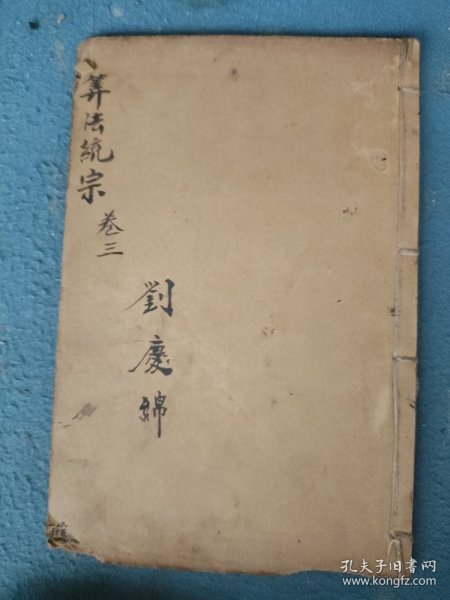 算法統宗
卷三
劉慶綿
孔夫子旧书网
www.kongfz.com